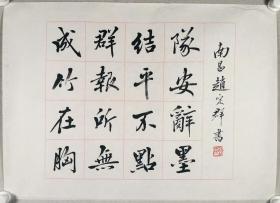 隊安辭墨
結平不點
群報所無
成竹在胸
南昌趙定群書